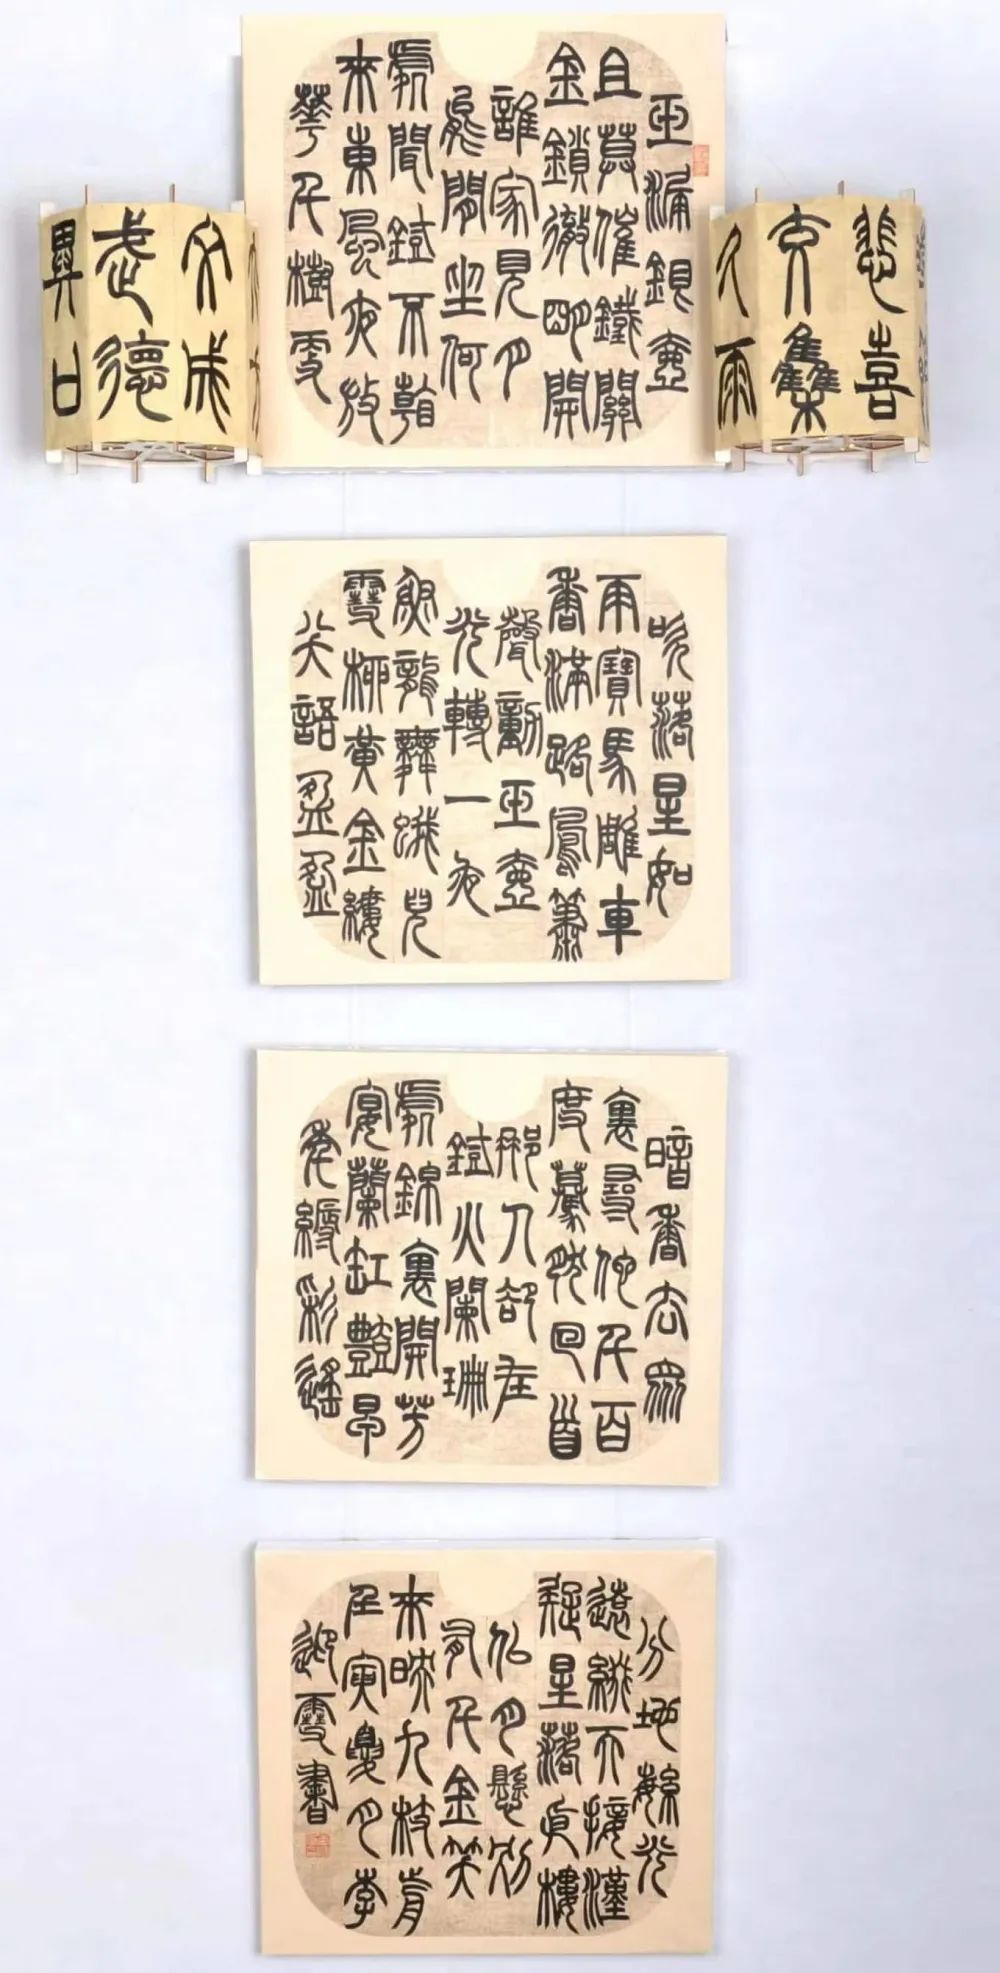 玉漏銀壺
且莫催鐵關
金鎖徹明開
誰家見月
能閒坐何
處聞鐙不看
來東風夜放
華千樹更
悲喜
交集
久雨
文成
武德
異口
吹落星如
雨寶馬雕車
香滿路鳳簫
聲動玉壺
光轉一夜
魚龍舞蛾兒
雪柳黃金縷
笑語盈盈
暗香去眾
裏尋他千百
度驀然回首
那人卻在
鐙火闌珊
處錦裏開芳
宴蘭缸豔早
年縟彩遙
分地繁光
遠綴天接漢
疑星落依樓
似月懸別
有千金笑
來映九枝前
壬寅夏月李
迎雪書